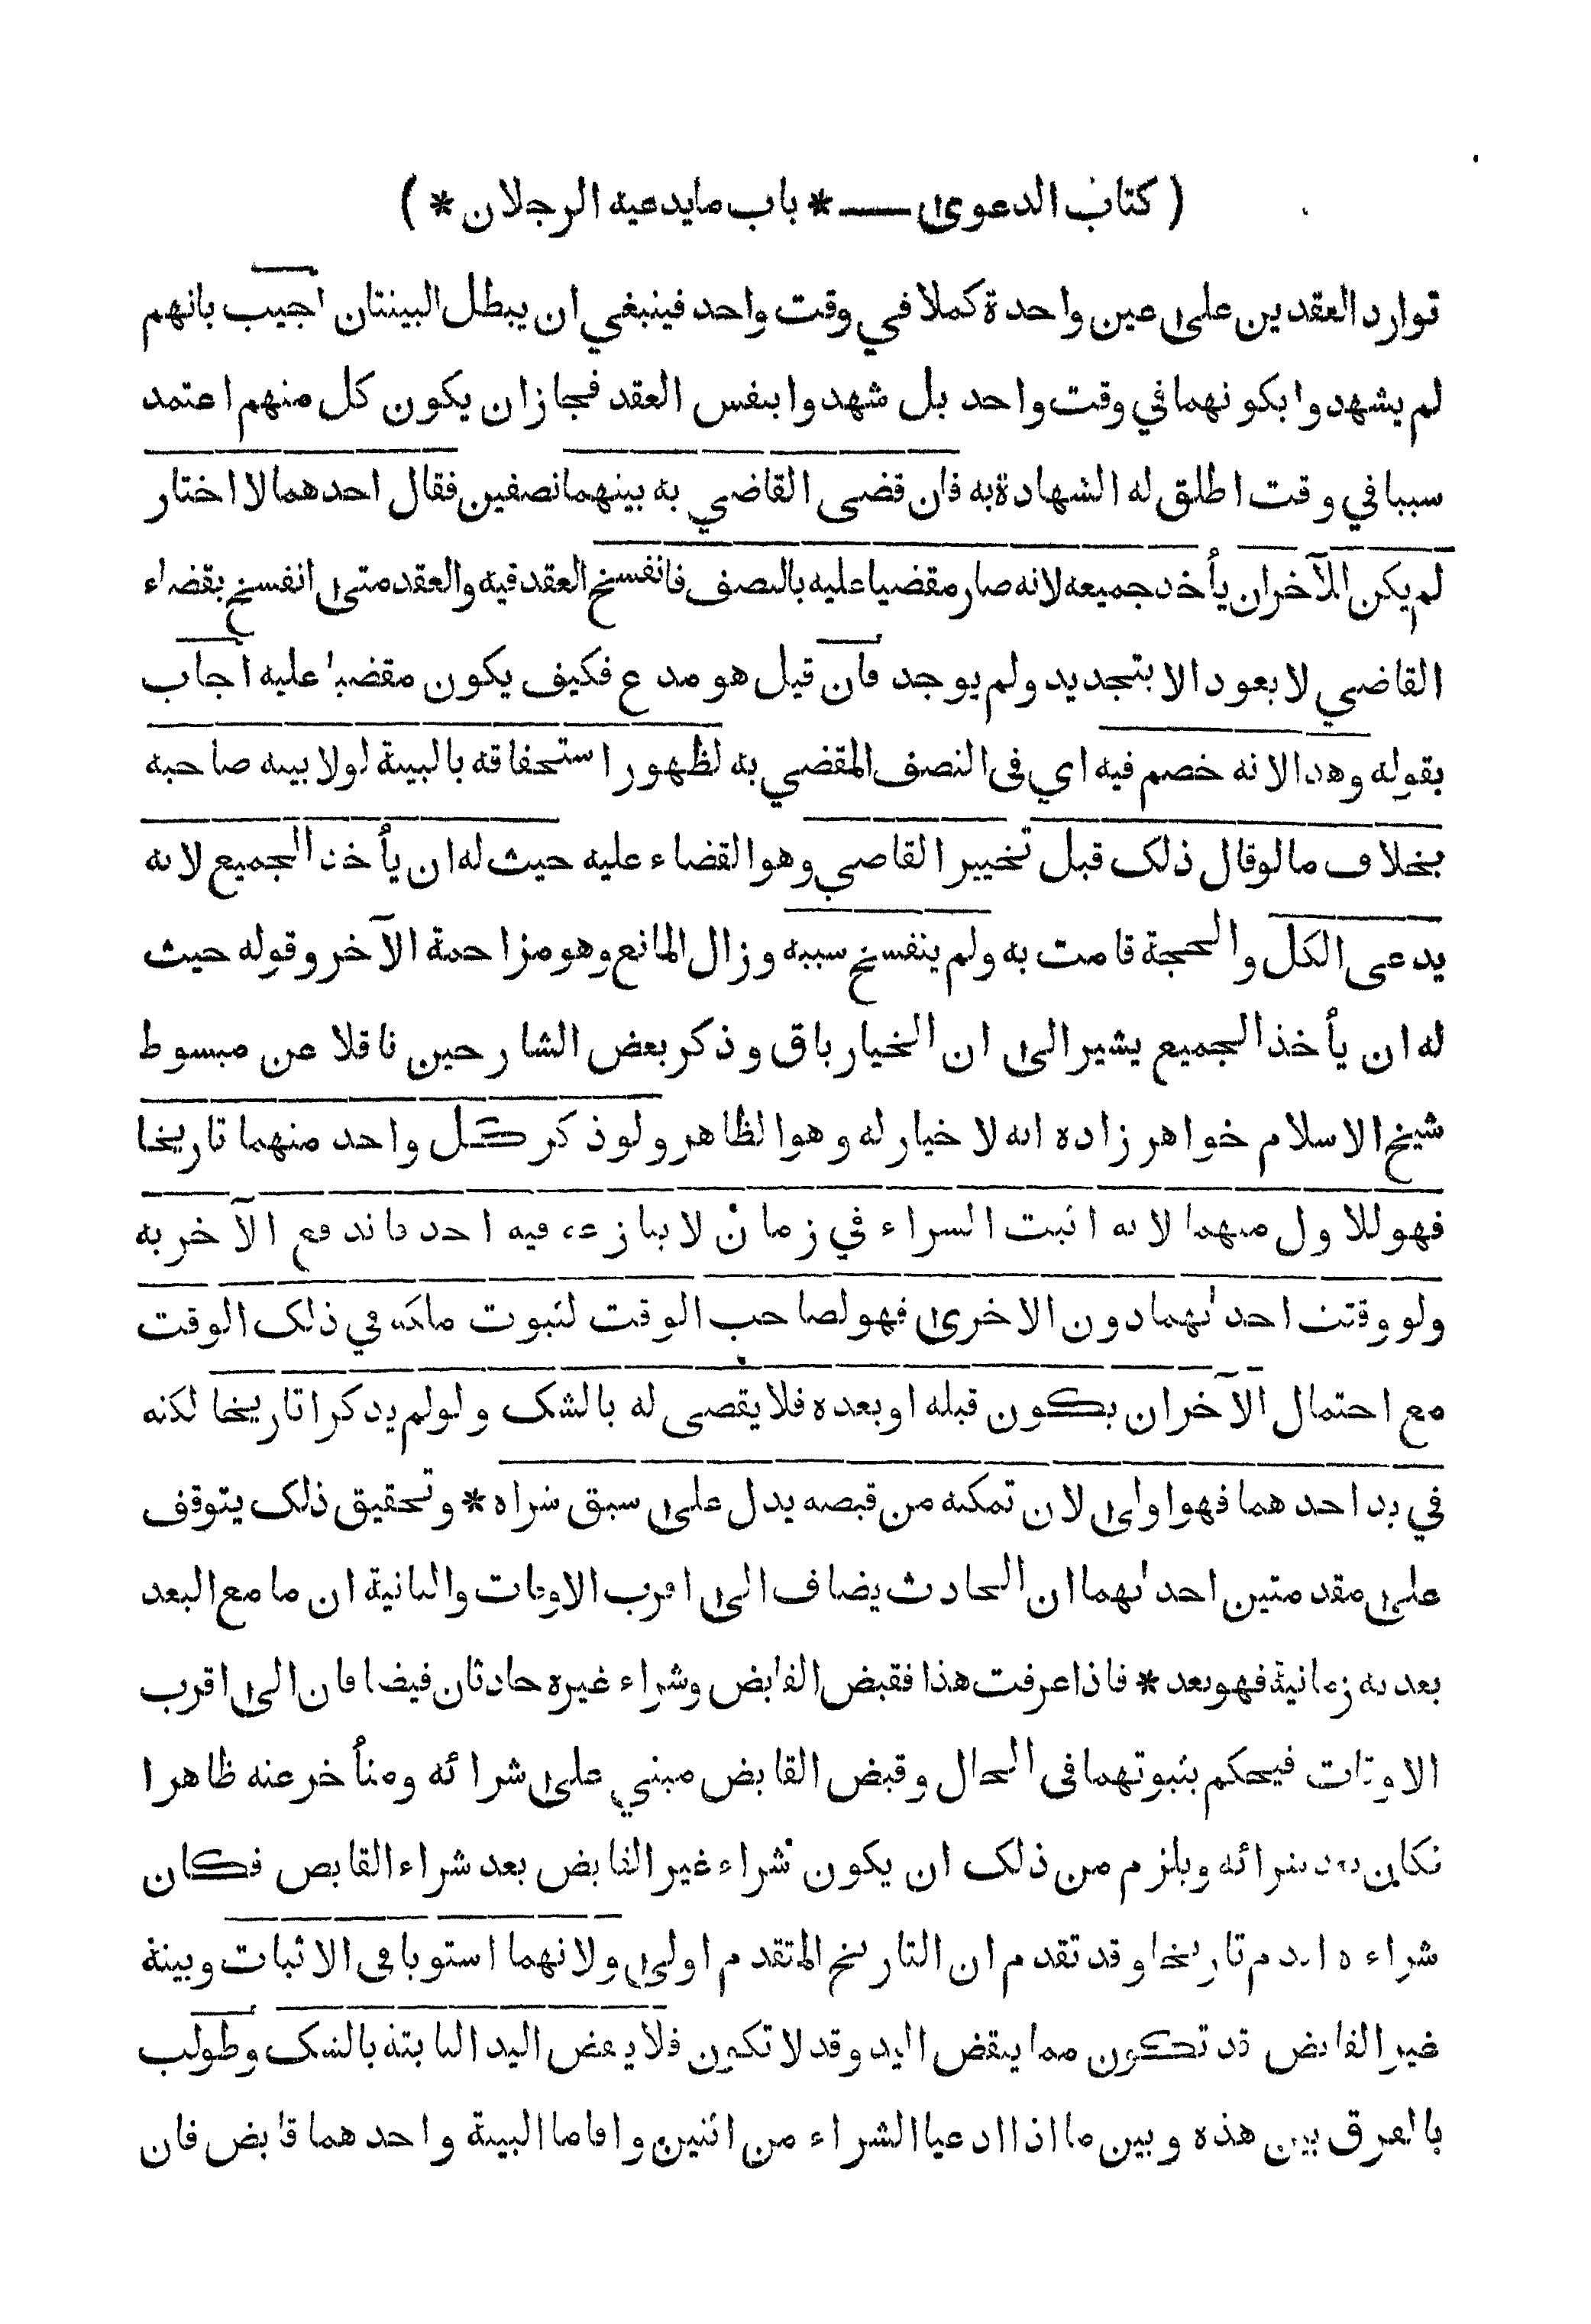 ( كتاب الدعوى — * باب ما يدعيه الرجلان * )
توارد العقدين على عين واحدة كملا في وقت واحد فينبغي ان يبطل البينتان اجيب بانهم
لم يشهدوا بكونهما في وقت واحد بل شهدوا بنفس العقد فجاز ان يكون كل منهم اعتمد
سببا في وقت اطلق له الشهادة به فان قضى القاضي به بينهما نصفين فقال احدهما لا اختار
لم يكن للآخر ان يأخذ جميعه لانه صار مقضيا عليه بالنصف فانفسخ العقد فيه والعقد متى انفسخ بقضاء
القاضي لا يعود الا بتجديد ولم يوجد فان قيل هو مدع فكيف يكون مقضيا عليه اجاب
بقوله وهذا لانه خصم فيه اي في النصف المقضي به لظهور استحقاقه بالبينة لولا بينة صاحبه
بخلاف ما لو قال ذلك قبل تخيير القاضي وهو القضاء عليه حيث له ان يأخذ الجميع لانه
يدعى الكل والحجة قامت به ولم ينفسخ سببه وزال المانع وهو مزاحمة الآخر وقوله حيث
له ان يأخذ الجميع يشير الى ان الخيار باق وذكر بعض الشارحين ناقلا عن مبسوط
شيخ الاسلام خواهر زاده انه لا خيار له وهو الظاهر ولو ذكر كل واحد منهما تاريخا
فهو للاول منهما لانه اثبت الشراء في زمان لا ينازعه فيه احد فاندفع الآخر به
ولو وقتت احدٰهما دون الاخرى فهو لصاحب الوقت لثبوت ملكه في ذلك الوقت
مع احتمال الآخر ان يكون قبله او بعده فلا يقضى له بالشك ولو لم يذكرا تاريخا لكنه
في يد احدهما فهو اولى لان تمكنه من قبضه يدل على سبق شراه * وتحقيق ذلك يتوقف
على مقدمتين احدٰهما ان الحادث يضاف الى اقرب الاوقات والثانية ان ما مع البعد
بعد به زمانية فهو بعد * فاذا عرفت هذا فقبض القابض وشراء غيره حادثان فيضافان الى اقرب
الاوقات فيحكم بثبوتهما في الحال وقبض القابض مبني على شرائه ومتأخر عنه ظاهرا
فكان بعد شرائه ويلزم من ذلك ان يكون شراء غير القابض بعد شراء القابض فكان
شراءه اقدم تاريخا وقد تقدم ان التاريخ المتقدم اولى ولانهما استويا في الاثبات وبينة
غير القابض قد تكون مما ينقض اليد وقد لا تكون فلا ينقض اليد الثابتة بالشك وطولب
بالفرق بين هذه وبين ما اذا ادعيا الشراء من اثنين واقاما البينة واحدهما قابض فان